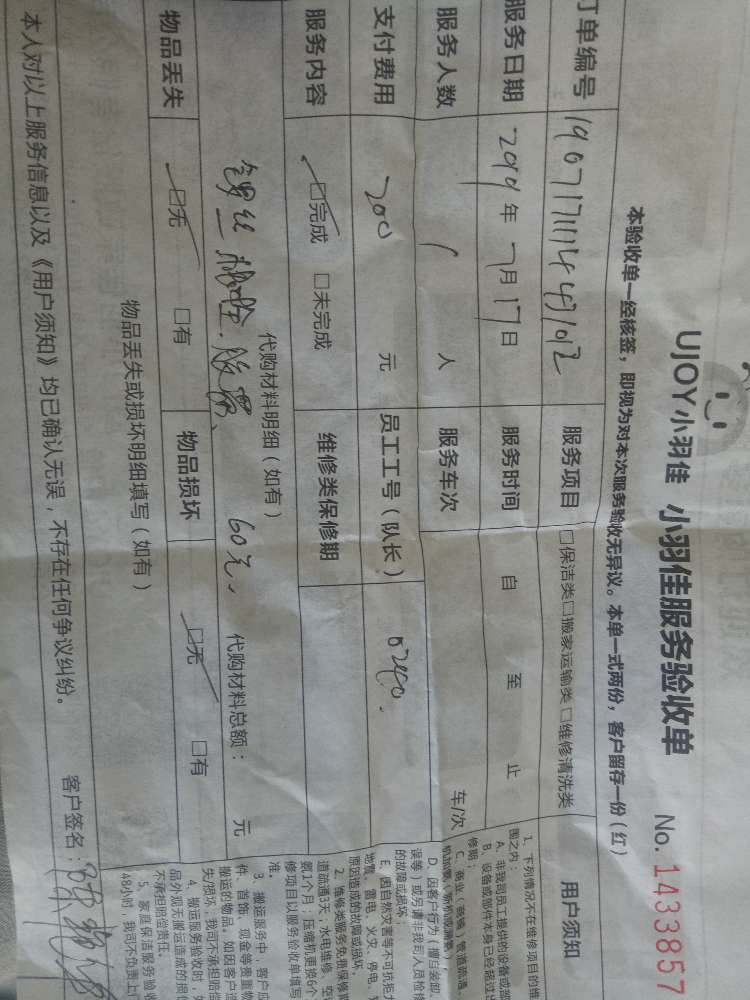 UJOY小羽佳 小羽佳服务验收单 No. 1433857
本验收单一经核签，即视为对本次服务验收无异议。本单一式两份，客户留存一份（红）
订单编号 服务项目 □保洁类□搬家运输类□维修清洗类
服务日期 年 7月17日 服务时间 自 至 止
服务人数 1 人 服务车次 车/次
支付费用 200 元 员工工号（队长）
服务内容 □完成 □未完成 维修类保修期
代购材料明细（如有）
60元、 代购材料总额： 元
物品丢失 □无 □有 物品损坏 □无 □有
物品丢失或损坏明细填写（如有）
本人对以上服务信息以及《用户须知》均已确认无误，不存在任何争议纠纷。 客户签名：
用户须知
1、下列情况不在维修项目的维
围之内：
A、非我司员工提供的设备或部
B、设备或部件本身已经超过
修期；
C、商业（商铺）管道疏通、
D、因客户行为（擅自装卸、
误等）或另请非我司人员检修
的故障或损坏；
E、因自然灾害等不可抗拒力
地震、雷电、火灾、停电、
原因造成的故障或损坏。
2、维修类服务免费保修期
道疏通3天；水电维修、空
氨1个月；压缩机更换6个
修项目以服务验收单填写
准。
3、搬运服务中，客户应
件、首饰、现金等贵重物
搬运的物品。如因客户
失/损坏，我司不承担赔
4、搬运服务验收时，
品外观无搬运造成的损
不承担赔偿责任。
5、家庭保洁服务验收
48小时，我司不负责上门